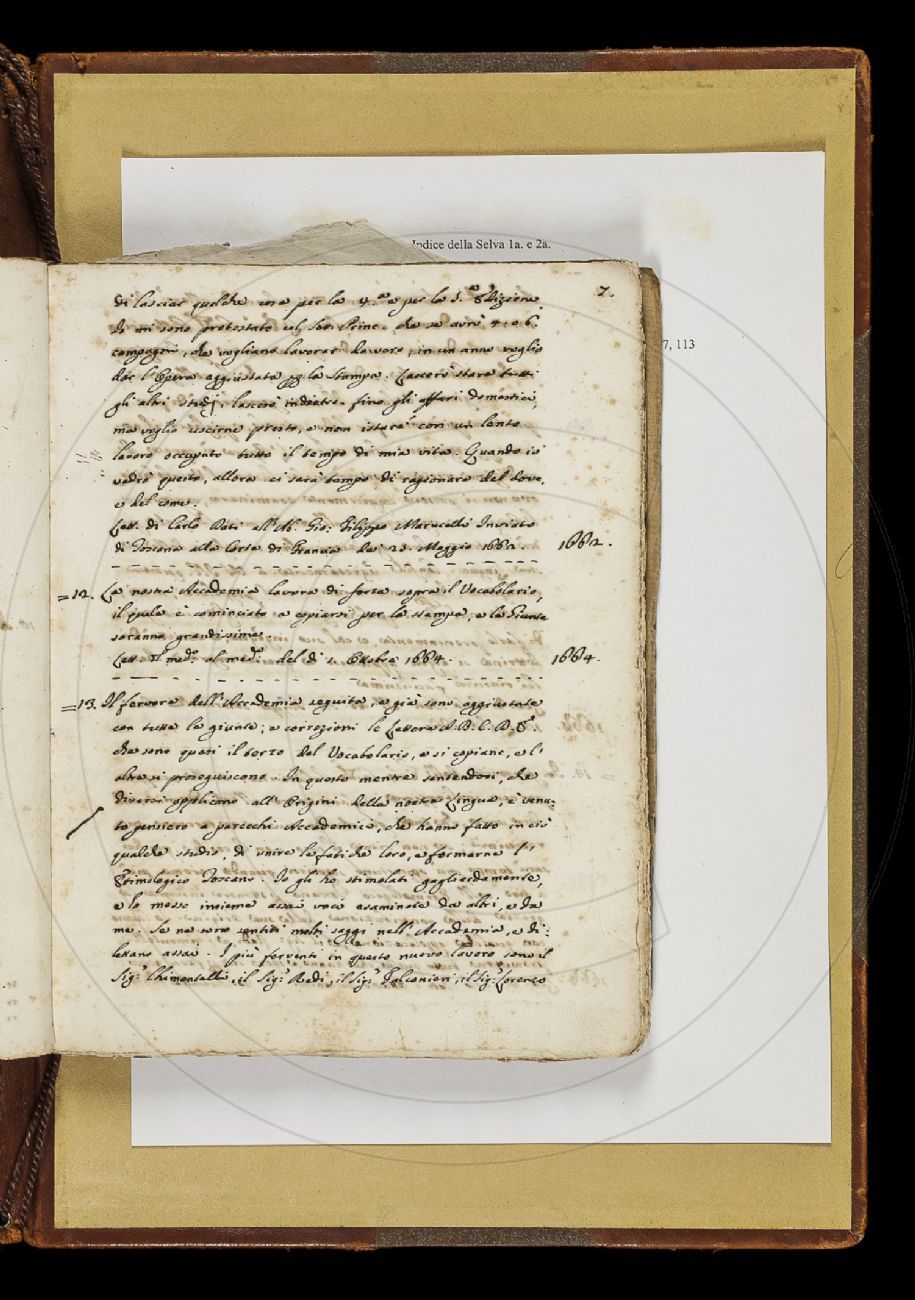 Indice della Selva 1a. e 2a.
7, 113
7.
di lasciar qualche cosa per la 4.ª e per la 5.ª Edizione
Io mi sono protestato col Ser. Princ. che se avrò 4. o 6.
compagni, che vogliano lavorar da vero, in un anno voglio
dar l'Opera aggiustata per la Stampa. Lascerò stare tutti
gli altri studj, lascerò indietro fino gli affari domestici,
ma voglio uscirne presto, e non istare con un lento
lavoro occupato tutto il tempo di mia vita. Quando io
vedrò questo, allora ci sarà tempo di ragionare del dove,
e del come.
Lett. di Carlo Dati all'Ab. Gio. Filippo Marucelli Inviato
di Toscana alla Corte di Francia dei 20. Maggio 1662.
1662.
=12. La nostra Accademia lavora di forza sopra il Vocabolario,
il quale è cominciato a copiarsi per la stampa, e le Giunte
saranno grandissime.
Lett. d. med.º al med.º del dì 1. Ottobre 1664.
1664.
=13. Il fervore dell'Accademia seguita, e già sono aggiustate
con tutte le giunte, e correzioni le Lettere A. B. C. D. E.
che sono quasi il terzo del Vocabolario, e si copiano, e l'
altre si proseguiscono. In questo mentre sentendosi, che
diversi applicano all'Origini della nostra Lingua, è venu-
to pensiero a parecchi Accademici, che hanno fatto in ciò
qualche studio, di unire le fatiche loro, e formarne l'
Etimologico Toscano. Io gli ho stimolati gagliardamente,
e ho messo insieme assai voci esaminate da altri, e da
me. Se ne sono sentiti molti saggi nell'Accademia, e di-
lettano assai. I più ferventi in questo nuovo lavoro sono il
Sig.r Chimentelli, il Sig.r Redi, il Sig.r Falconieri, il Sig.r Lorenzo